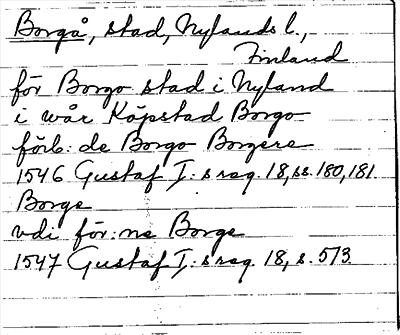 Borgå, stad, Nylands l.,
Finland
för Borgo stad i Nyland
i wår Köpstad Borgo
förb: de Borgo Borgere
1546 Gustaf I: s reg. 18, ss. 180, 181
Borge
vdi för: ne Borge
1547 Gustaf I: s reg. 18, s. 573